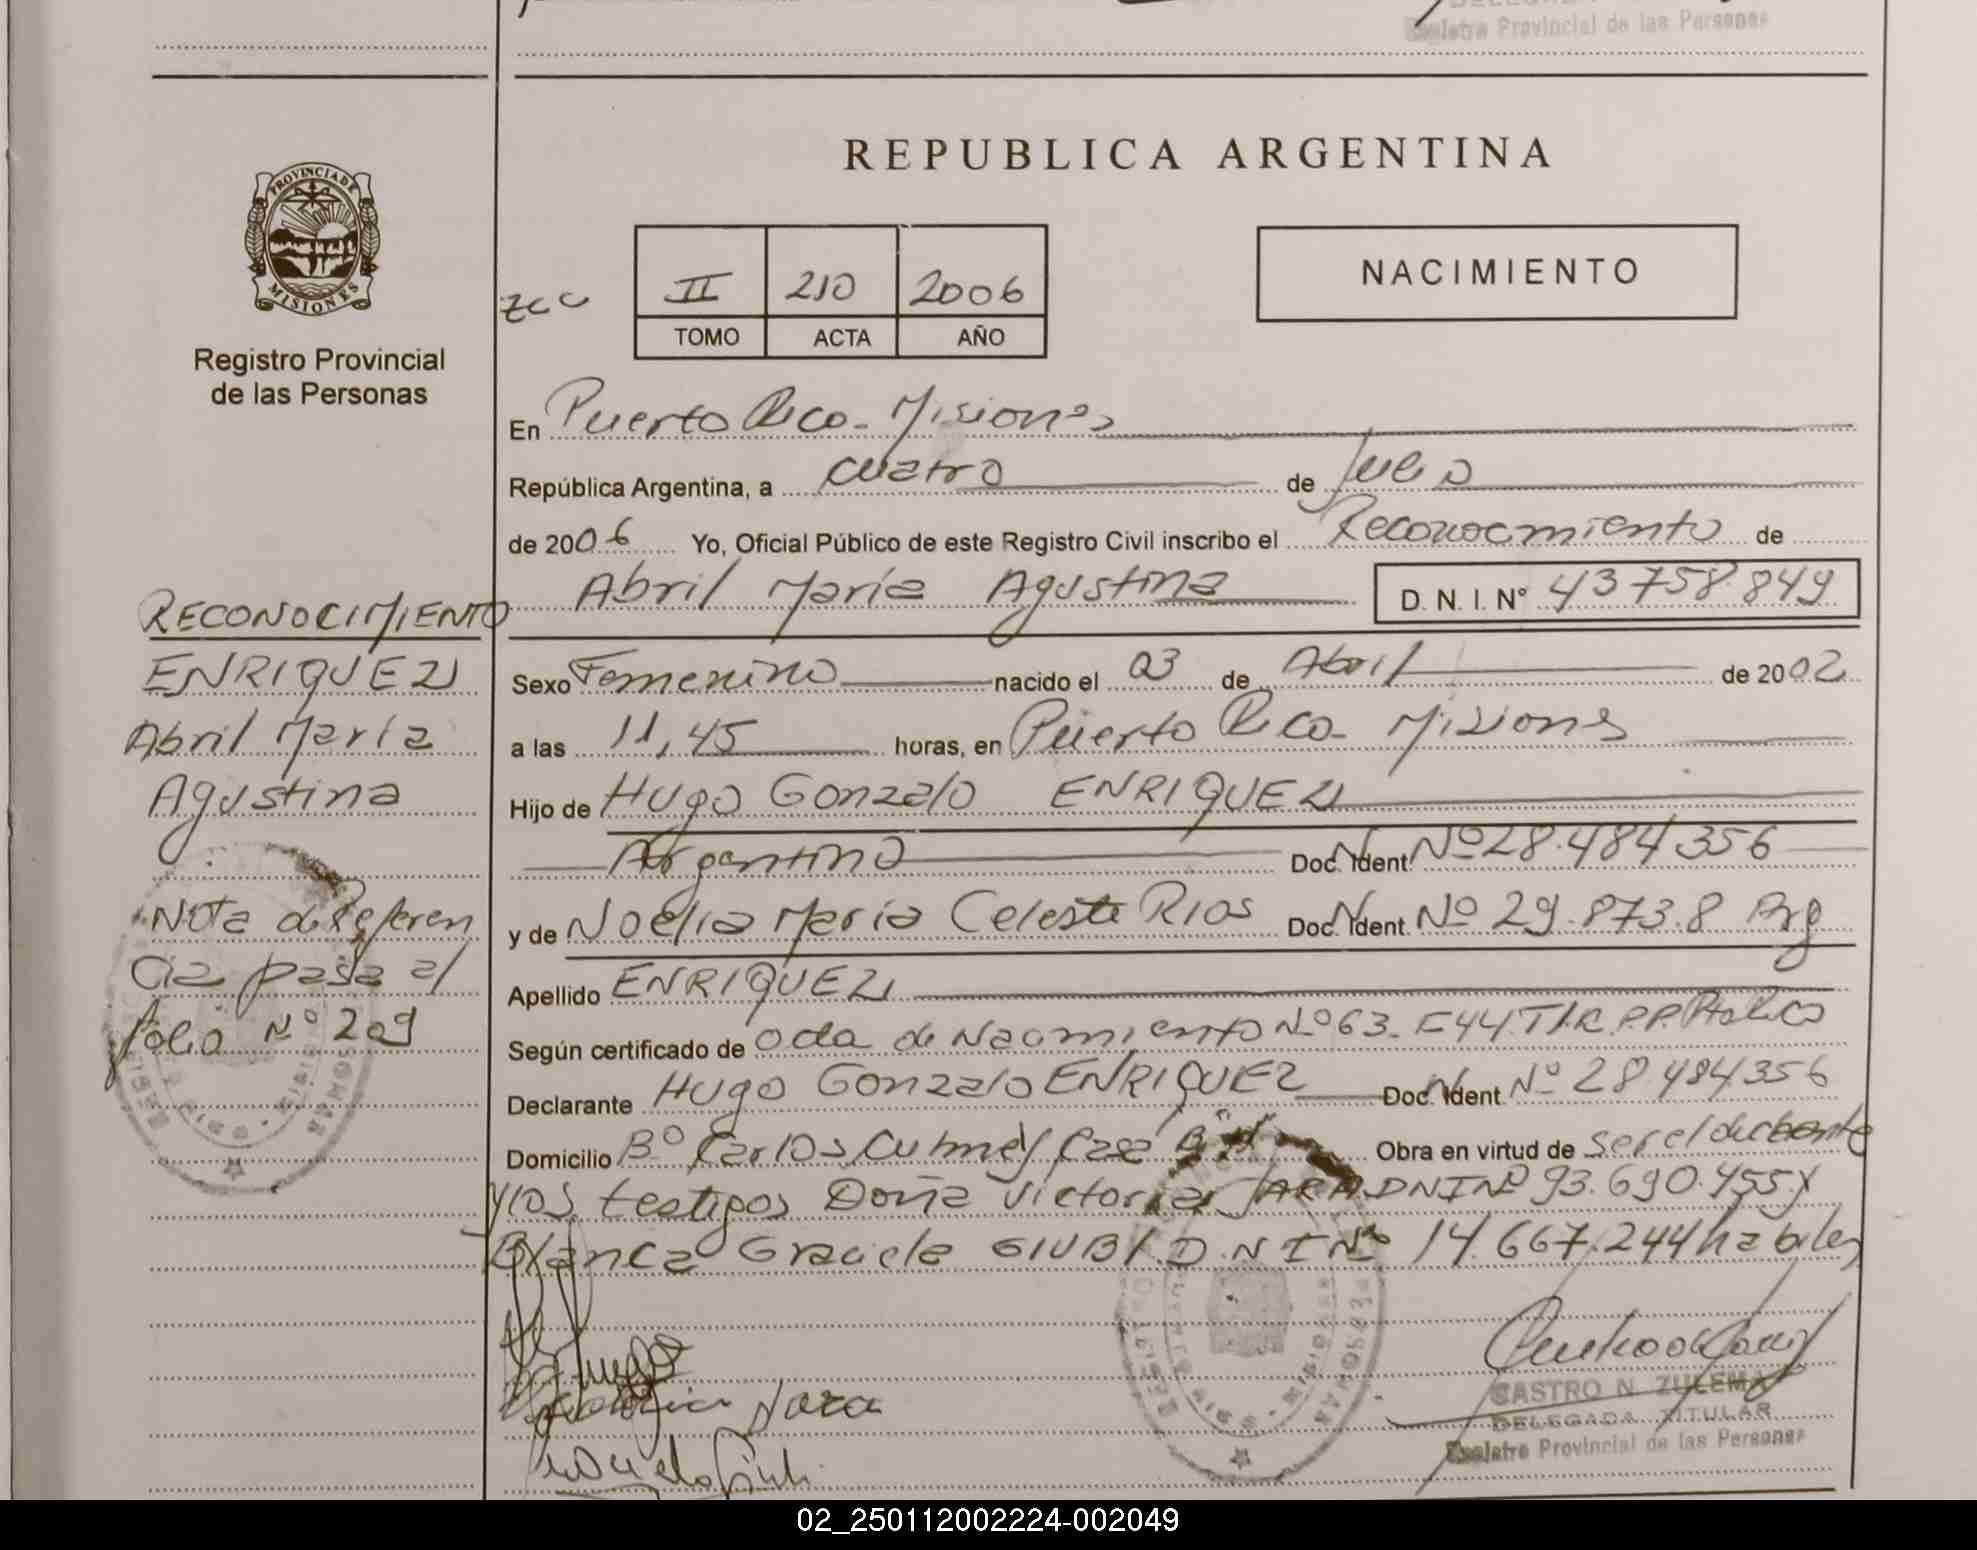 Registro Provincial de las Personas
REPUBLICA ARGENTINA
PROVINCIA DE
MISIONES
Registro Provincial
de las Personas
II 210 2006
TOMO ACTA AÑO
NACIMIENTO
En Puerto Rico - Misiones
República Argentina, a cuatro de Julio
de 2006 Yo, Oficial Público de este Registro Civil inscribo el Reconocimiento de
Abril María Agustina D. N. I. N° 43 758 849
Sexo Femenino nacido el 03 de Abril de 2002
a las 11,45 horas, en Puerto Rico - Misiones
Hijo de Hugo Gonzalo ENRIQUEZ
Argentino Doc. Ident. Nº 28.484 356
y de Noelia María Celeste RIOS Doc. Ident. Nº 29.873.8 Arg
Apellido ENRIQUEZ
Según certificado de Acta de Nacimiento Nº 63 - F44 T/R P.P. Pto Rico
Declarante Hugo Gonzalo ENRIQUEZ Doc. Ident. Nº 28 484 356
Domicilio Bº Carlos Culmey Casa Obra en virtud de ser el declarante
y los testigos Doña Victoria JARA DNI Nº 93.690.455 y
Blanca Graciela GIUBI D.N I Nº 14.667.244 habiles
CASTRO N. ZULEMA
DELEGADA TITULAR
Registro Provincial de las Personas
RECONOCIMIENTO
ENRIQUEZ
Abril María
Agustina
Nota de Referen
cia pasa al
folio Nº 209
02_250112002224-002049